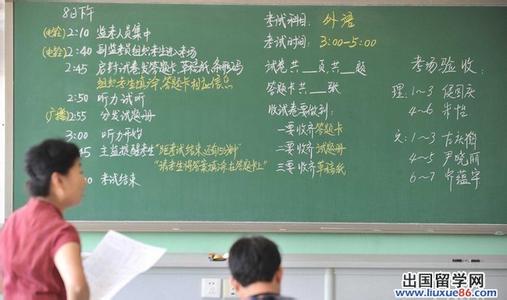 8日下午
(电铃) 2:10 监考人员集中
(电铃) 2:40 副监考员组织考生进入场
2:45 启封试卷发答题卡、草稿纸、条形码
组织考生填涂答题卡相应信息
2:50 听力试听
(广播) 2:55 分发试题册
3:00 听力开始
45 主监提醒考生"距考试结束还有15分钟"
"请考生将答案填涂在答题卡上"
00 考试结束
考试科目: 外语
考试时间: 3:00-5:00
试卷共__页,共__题
答题卡共__张
收试卷要做到:
一要收齐答题卡
二要收齐试题册
三要收齐草稿纸
考场验收:
理: 1~3
4~6 朱怡
文: 1~3
4~5 尹晓丽
6~7 乔蕴宇
出国留学网
www.liuxue86.com